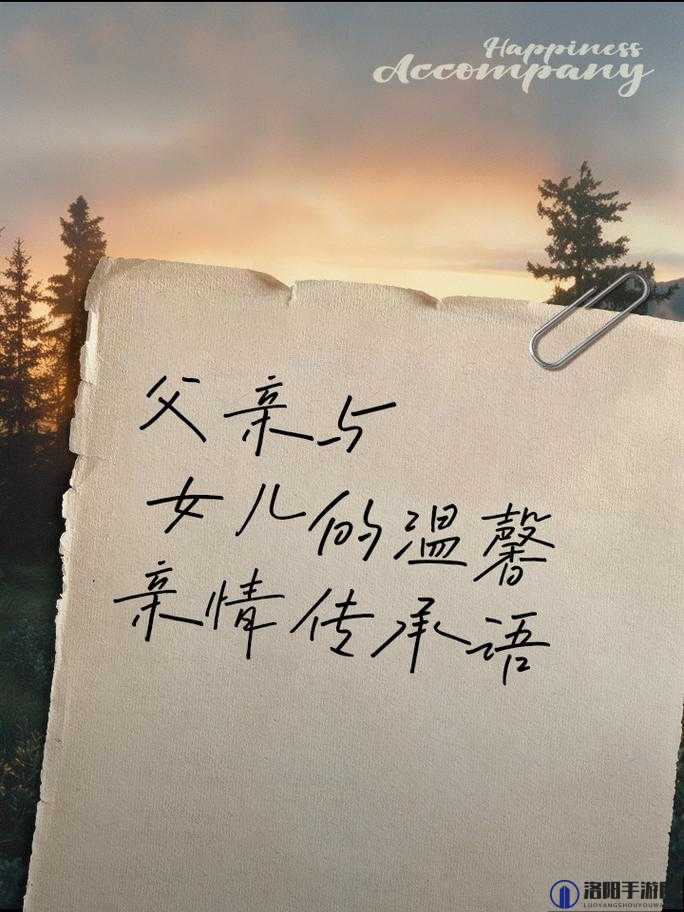 Happiness
Accompany
父亲与
女儿的温馨
亲情传承语
洛阳手游网
LUOYANGSHOUYOUWA